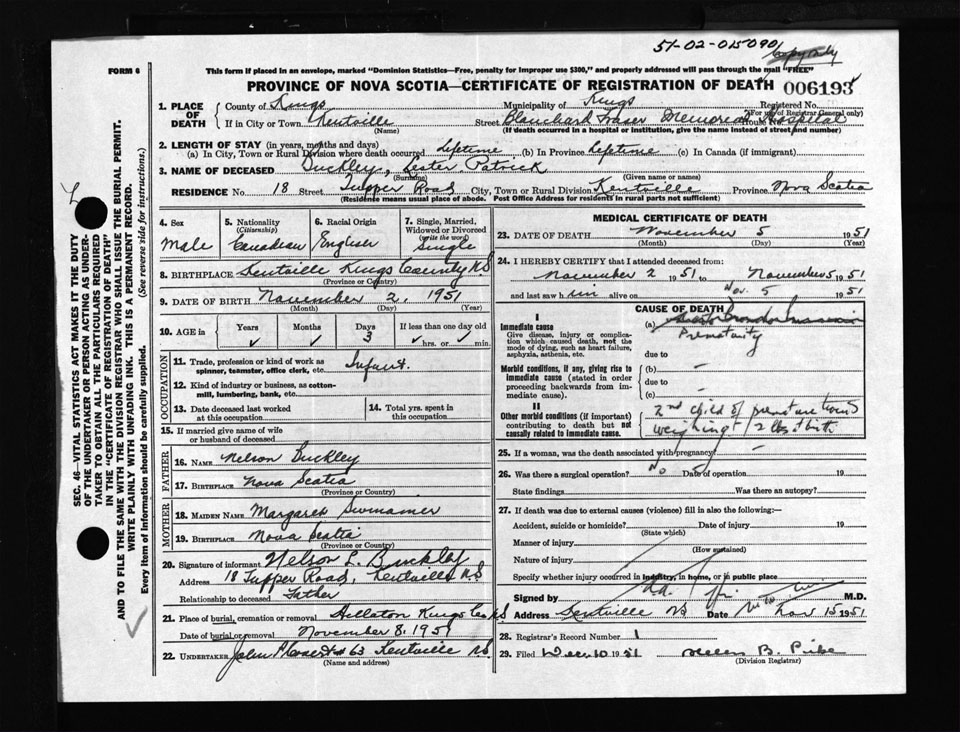 51-02-015090
Copy Only
FORM 6
This form if placed in an envelope, marked "Dominion Statistics—Free, penalty for improper use $300," and properly addressed will pass through the mail "FREE"
PROVINCE OF NOVA SCOTIA—CERTIFICATE OF REGISTRATION OF DEATH 006193
1. PLACE OF DEATH County of Kings Municipality of Kings Registered No.
(For use of Registrar General only)
If in City or Town Kentville (Name) Street Blanchard Fraser Memorial Hospital House No.
(If death occurred in a hospital or institution, give the name instead of street and number)
2. LENGTH OF STAY (in years, months and days)
(a) In City, Town or Rural Division where death occurred lifetime (b) In Province lifetime (c) In Canada (if immigrant)
3. NAME OF DECEASED Buckley, Lester Patrick
(Surname) (Given name or names)
RESIDENCE No. 18 Street Tupper Road City, Town or Rural Division Kentville Province Nova Scotia
(Residence means usual place of abode. Post Office Address for residents in rural parts not sufficient)
4. Sex Male
5. Nationality (Citizenship) Canadian
6. Racial Origin English
7. Single, Married, Widowed or Divorced (write the word) Single
8. BIRTHPLACE Kentville Kings County N.S
(Province or Country)
9. DATE OF BIRTH November 2, 1951
(Month) (Day) (Year)
10. AGE in Years ✓ Months ✓ Days 3 If less than one day old ✓ hrs. or ✓ min.
OCCUPATION
11. Trade, profession or kind of work as spinner, teamster, office clerk, etc. Infant.
12. Kind of industry or business, as cotton-mill, lumbering, bank, etc.
13. Date deceased last worked at this occupation
14. Total yrs. spent in this occupation
15. If married give name of wife or husband of deceased
FATHER
16. NAME Nelson Buckley
17. BIRTHPLACE Nova Scotia
(Province or Country)
MOTHER
18. MAIDEN NAME Margaret Swinamer
19. BIRTHPLACE Nova Scotia
(Province or Country)
20. Signature of informant Nelson L. Buckley
Address 18 Tupper Road, Kentville N.S
Relationship to deceased Father
21. Place of burial, cremation or removal Kings Co N.S
Date of burial or removal November 8, 1951
22. UNDERTAKER John # 63 Kentville N.S.
(Name and address)
MEDICAL CERTIFICATE OF DEATH
23. DATE OF DEATH November 5 1951
(Month) (Day) (Year)
24. I HEREBY CERTIFY that I attended deceased from:
November 2 1951 to November 5 1951
and last saw him alive on Nov. 5 1951
CAUSE OF DEATH
I
Immediate cause
Give disease, injury or complication which caused death, not the mode of dying, such as heart failure, asphyxia, asthenia, etc.
(a)
Prematurity
due to
Morbid conditions, if any, giving rise to immediate cause (stated in order proceeding backwards from immediate cause).
(b) —
due to
(c) —
II
Other morbid conditions (if important) contributing to death but not causally related to immediate cause.
2nd child of premature twins
weighing 2 lbs at birth
25. If a woman, was the death associated with pregnancy?
26. Was there a surgical operation? No Date of operation 19
State findings Was there an autopsy?
27. If death was due to external causes (violence) fill in also the following:—
Accident, suicide or homicide? Date of injury 19
(State which)
Manner of injury
(How sustained)
Nature of injury
Specify whether injury occurred in industry, in home, or in public place
Signed by M.D.
Address Kentville NS Date Nov 15 1951
28. Registrar's Record Number 1
29. Filed Dec. 10 1951 Helen B.
(Division Registrar)
SEC. 46—VITAL STATISTICS ACT MAKES IT THE DUTY
OF THE UNDERTAKER OR PERSON ACTING AS UNDERTAKER TO OBTAIN ALL THE PARTICULARS REQUIRED
IN THE "CERTIFICATE OF REGISTRATION OF DEATH"
AND TO FILE THE SAME WITH THE DIVISION REGISTRAR WHO SHALL ISSUE THE BURIAL PERMIT.
WRITE PLAINLY WITH UNFADING INK. THIS IS A PERMANENT RECORD.
Every item of Information should be carefully supplied. (See reverse side for instructions.)